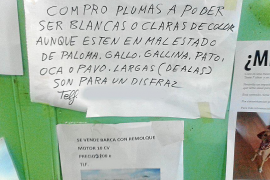 COMPRO PLUMAS A PODER
SER BLANCAS O CLARAS DE COLOR
AUNQUE ESTEN EN MAL ESTADO
DE PALOMA, GALLO, GALLINA, PATO,
OCA O PAVO. LARGAS (DE ALAS)
SON PARA UN DISFRAZ
Telf.
SE VENDE BARCA CON REMOLQUE
MOTOR 10 CV
TLF
¿ME